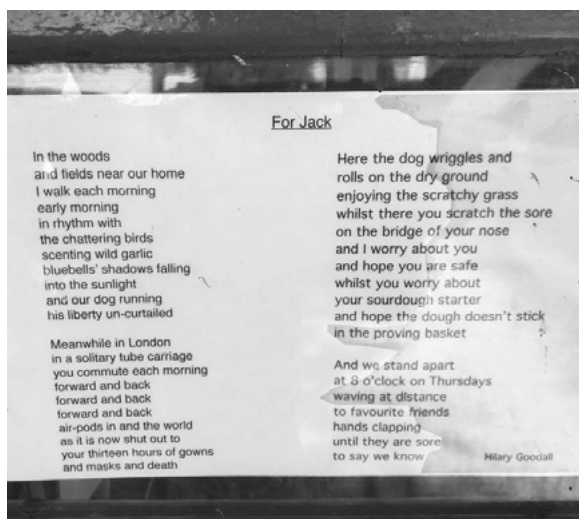 For Jack
In the woods
and fields near our home
I walk each morning
early morning
in rhythm with
the chattering birds
scenting wild garlic
bluebells' shadows falling
into the sunlight
and our dog running
his liberty un-curtailed
Meanwhile in London
in a solitary tube carriage
you commute each morning
forward and back
forward and back
forward and back
air-pods in and the world
as it is now shut out to
your thirteen hours of gowns
and masks and death
Here the dog wriggles and
rolls on the dry ground
enjoying the scratchy grass
whilst there you scratch the sore
on the bridge of your nose
and I worry about you
and hope you are safe
whilst you worry about
your sourdough starter
and hope the dough doesn't stick
in the proving basket
And we stand apart
at 8 o'clock on Thursdays
waving at distance
to favourite friends
hands clapping
until they are sore
to say we know
Hilary Goodall